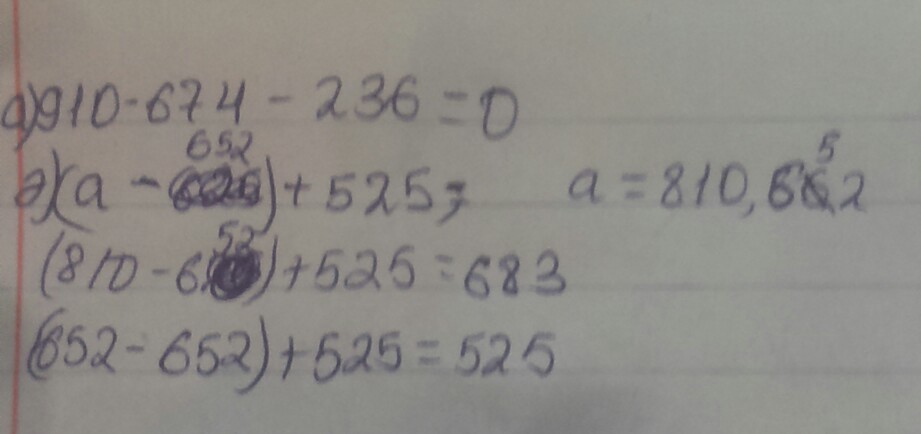 д) 910-674-236=0
е) (a-652)+525; a=810,652
(810-652)+525=683
(652-652)+525=525